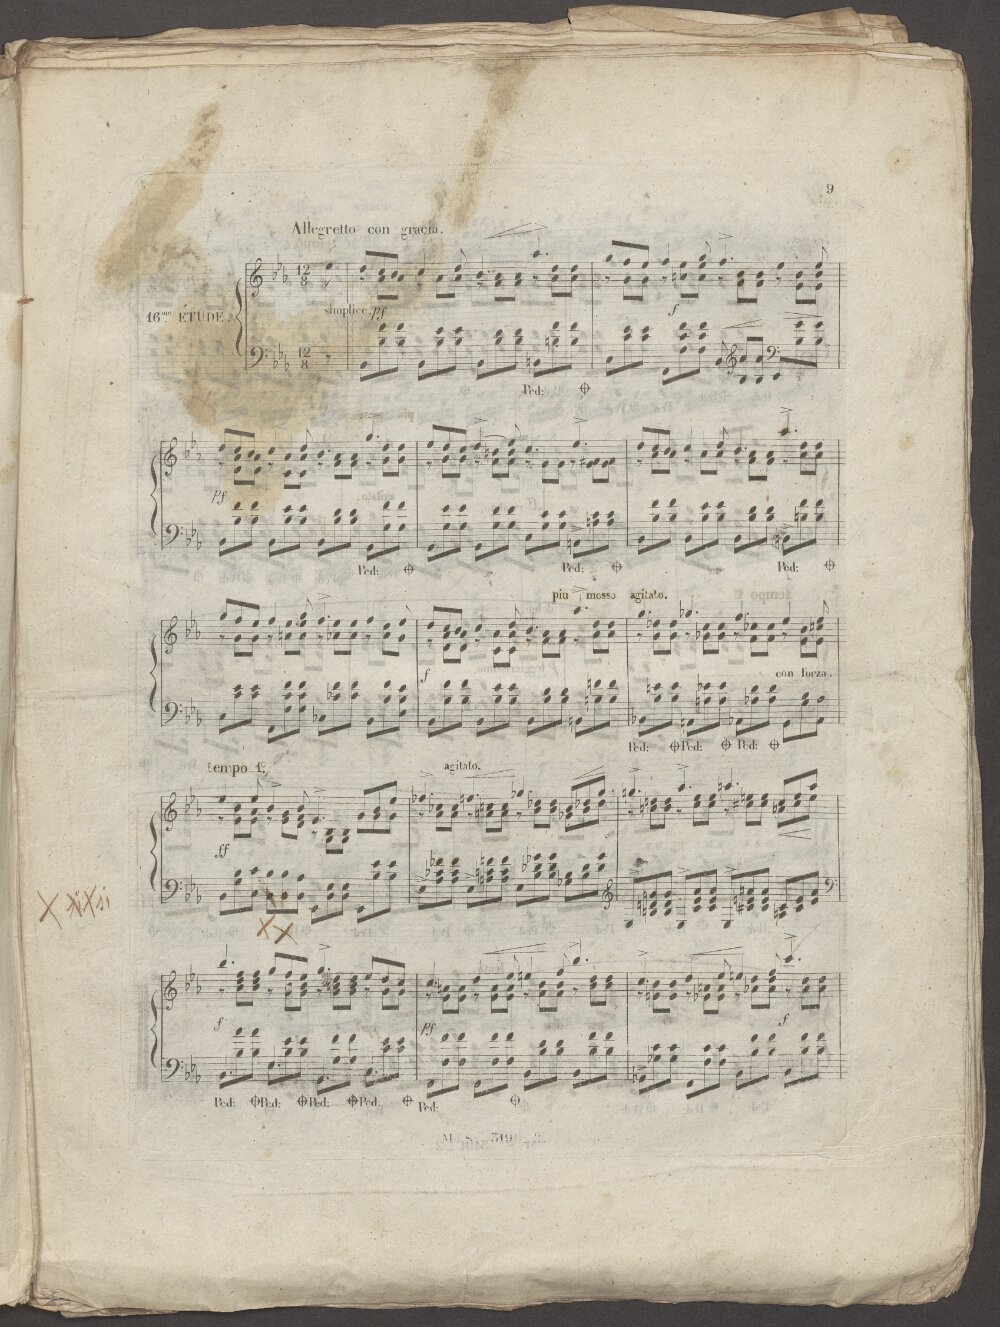 9
Allegretto con gracia.
16me ÉTUDE.
12
8
simplice. pf
f
12
8
Ped:
pf
Ped: Ped: Ped:
più mosso agitato.
f
con forza.
Ped: Ped: Ped:
tempo 1º
agitato.
ff
f
pf
f
Ped: Ped: Ped: Ped: Ped: